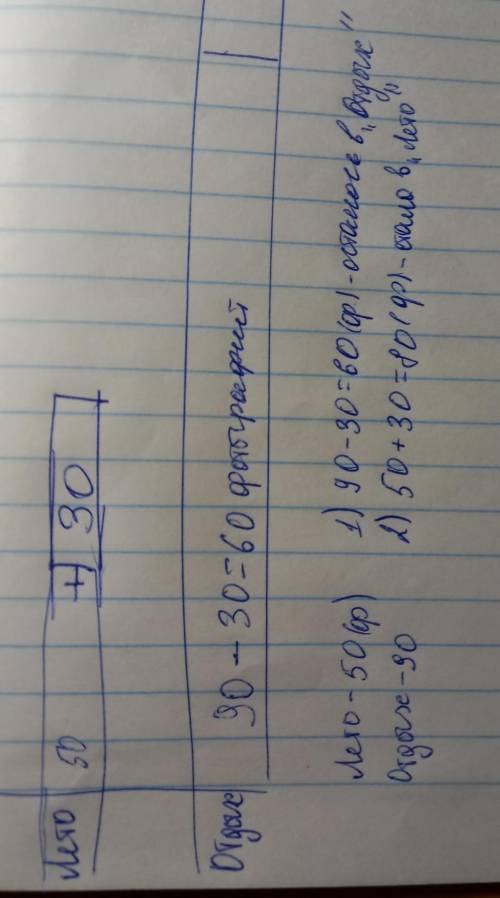 Лето 50 + 30
Отдых 90 - 30 = 60 фотографий
Лето - 50 (ф)
Отдых - 90
1) 90 - 30 = 60 (ф.) - осталось в „Отдых"
2) 50 + 30 = 80 (ф) - стало в „Лето"